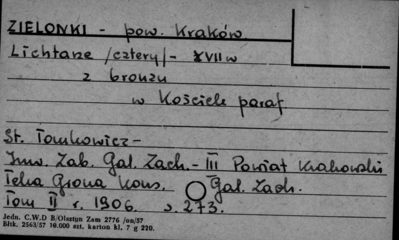 ZIELONKI - pow. Kraków
Lichtarze /cztery/ - XVII w
z bronzu
w Kościele paraf
St. Tomkowicz -
Inw. Zab. Gal. Zach. - III Powiat Krakowski
Teka Grona Kons. Gal. Zach.
Tom II r. 1906. s. 273.
Jedn. C.W.D B/Olsztyn Zam 2776 /on/57
Błk. 2563/57 10.000 szt. karton kl. 7 g 220.